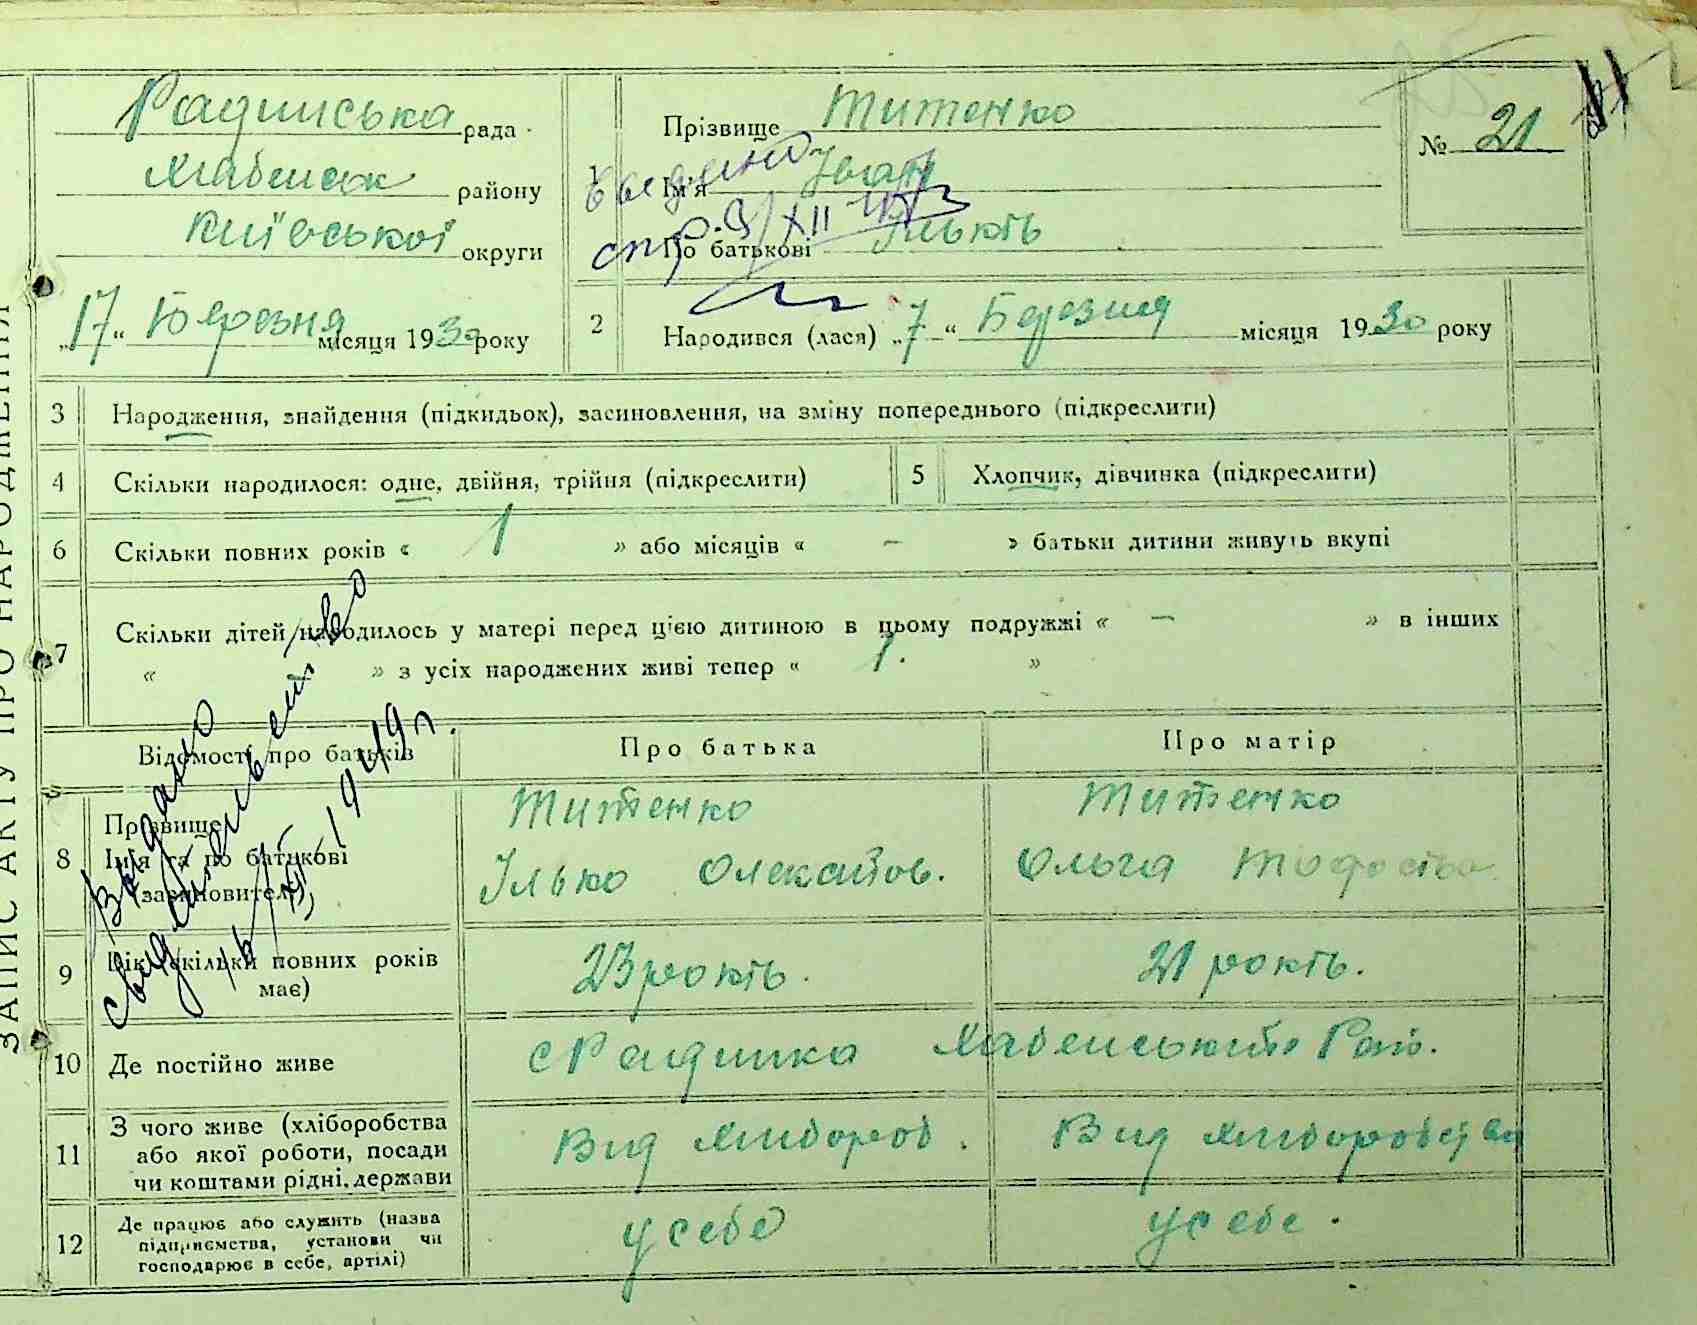 ЗАПИС АКТУ ПРО НАРОДЖЕННЯ
Радинська рада
Хабенськ району
Київської округи
„17“ Березня місяця 1930 року
№ 21
1
Прізвище Титенко
Ім'я Іван
По батьковіІльків
2 Народився (лася) „7“ Березня місяця 1930 року
3 Народження, знайдення (підкидьок), засиновлення, на зміну попереднього (підкреслити)
4 Скільки народилося: одне, двійня, трійня (підкреслити)
5 Хлопчик, дівчинка (підкреслити)
6 Скільки повних років « 1 » або місяців « – » батьки дитини живуть вкупі
7 Скільки дітей народилось у матері перед цією дитиною в цьому подружжі « – » в інших
« » з усіх народжених живі тепер « 1. »
Відомості про батьків
Про батька
Про матір
8 Прізвище
Ім'я та по батькові
(засиновителя)
Титенко
Ілько Олексайов.
Титенко
Ольга
9 Вік (скільки повних років
має)
23 років.
21 років.
10 Де постійно живе
с Радинка Хабенського Рай.
11 З чого живе (хліборобства
або якої роботи, посади
чи коштами рідні, держави
Вид хлибороб.
Вид хлиборобства
12 Де працює або служить (назва
підприємства, установи чи
господарює в себе, артілі)
у себе
у себе.
Видано
свидетельство
16/XII 1949 г.